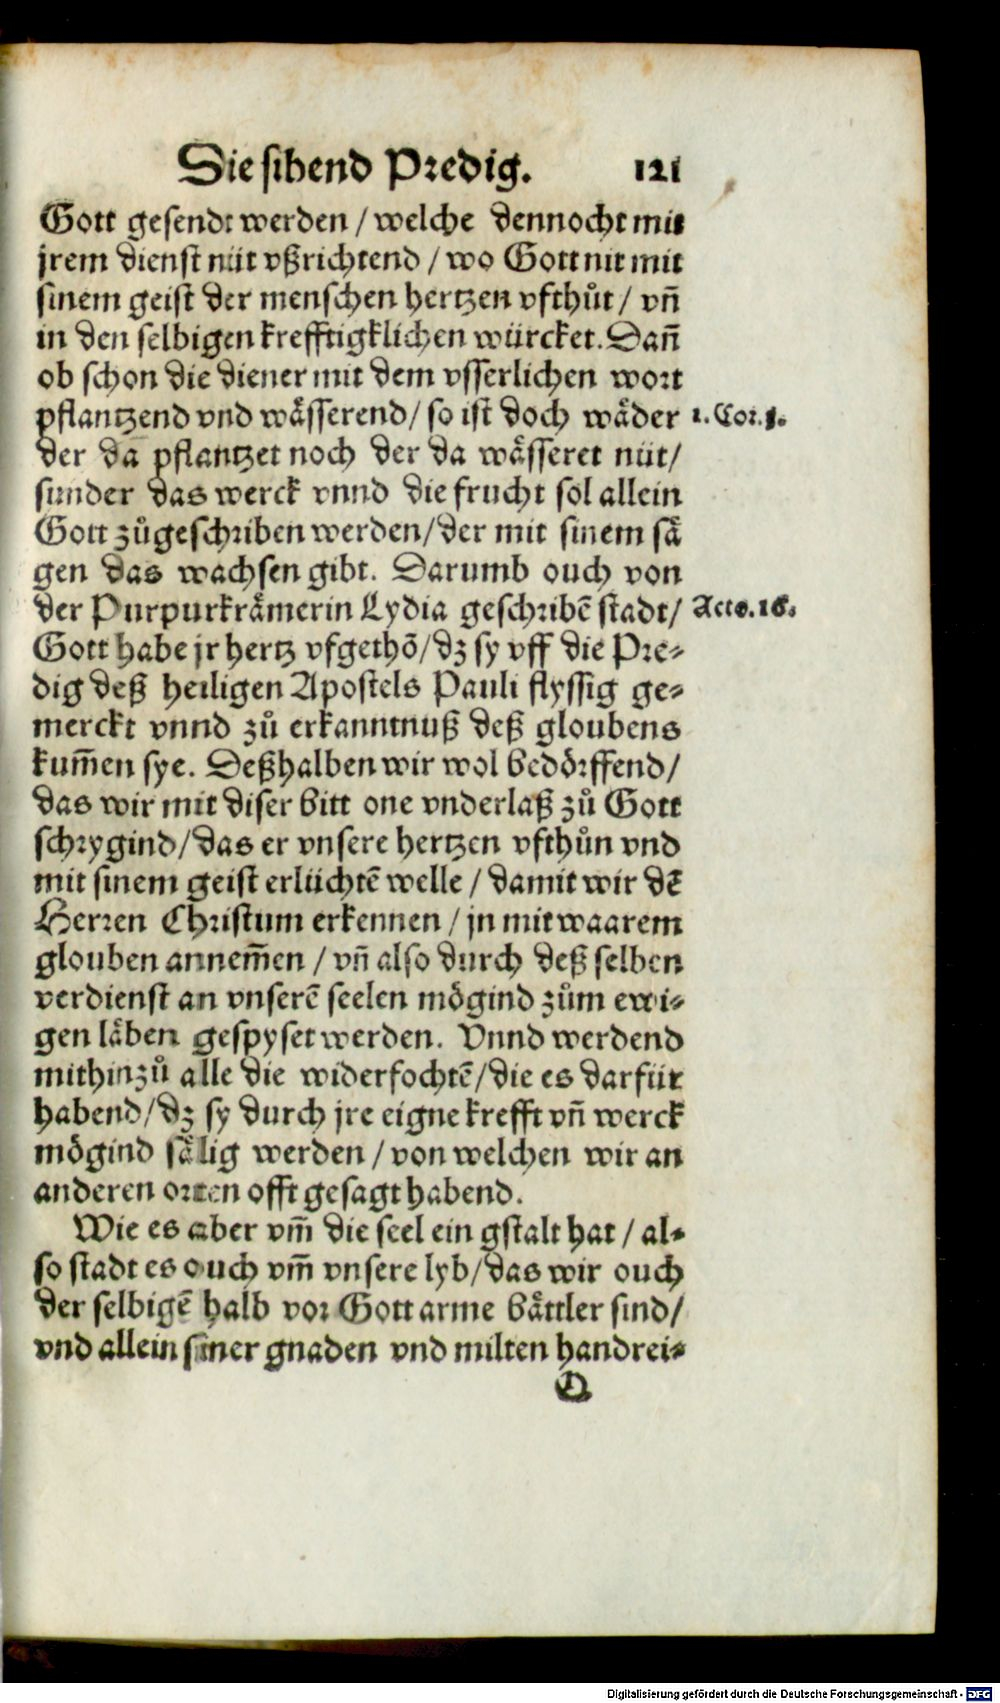 Die sibend Predig. 121
Gott gesendt werden / welche dennocht mit
jrem dienst nüt vßrichtend / wo Gott nit mit
sinem geist der menschen hertzen vfthůt / vn̄
in den selbigen krefftigklichen würcket. Dan̄
ob schon die diener mit dem vsserlichen wort
pflantzend vnd wässerend / so ist doch wäder 1. Cor. 3.
der da pflantzet noch der da wässeret nüt /
sunder das werck vnnd die frucht sol allein
Gott zůgeschriben werden / der mit sinem sä
gen das wachsen gibt. Darumb ouch von
der Purpurkrämerin Lydia geschribē stadt / Acto. 16.
Gott habe jr hertz vfgethō / dz sy vff die Pre-
dig deß heiligen Apostels Pauli flyssig ge-
merckt vnnd zů erkanntnuß deß gloubens
kum̄en sye. Deßhalben wir wol bedörffend /
das wir mit diser bitt one vnderlaß zů Gott
schrygind / das er vnsere hertzen vfthůn vnd
mit sinem geist erlüchtē welle / damit wir dē
Herren Christum erkennen / jn mit waarem
glouben annem̄en / vn̄ also durch deß selben
verdienst an vnserē seelen mögind zům ewi-
gen läben gespyset werden. Vnnd werdend
mithinzů alle die widerfochtē / die es darfür
habend / dz sy durch jre eigne krefft vn̄ werck
mögind sälig werden / von welchen wir an
anderen orten offt gesagt habend.
Wie es aber vm̄ die seel ein gstalt hat / al-
so stadt es ouch vm̄ vnsere lyb / das wir ouch
der selbigē halb vor Gott arme bättler sind /
vnd allein siner gnaden vnd milten handrei-
Q
Digitalisierung gefördert durch die Deutsche Forschungsgemeinschaft - DFG